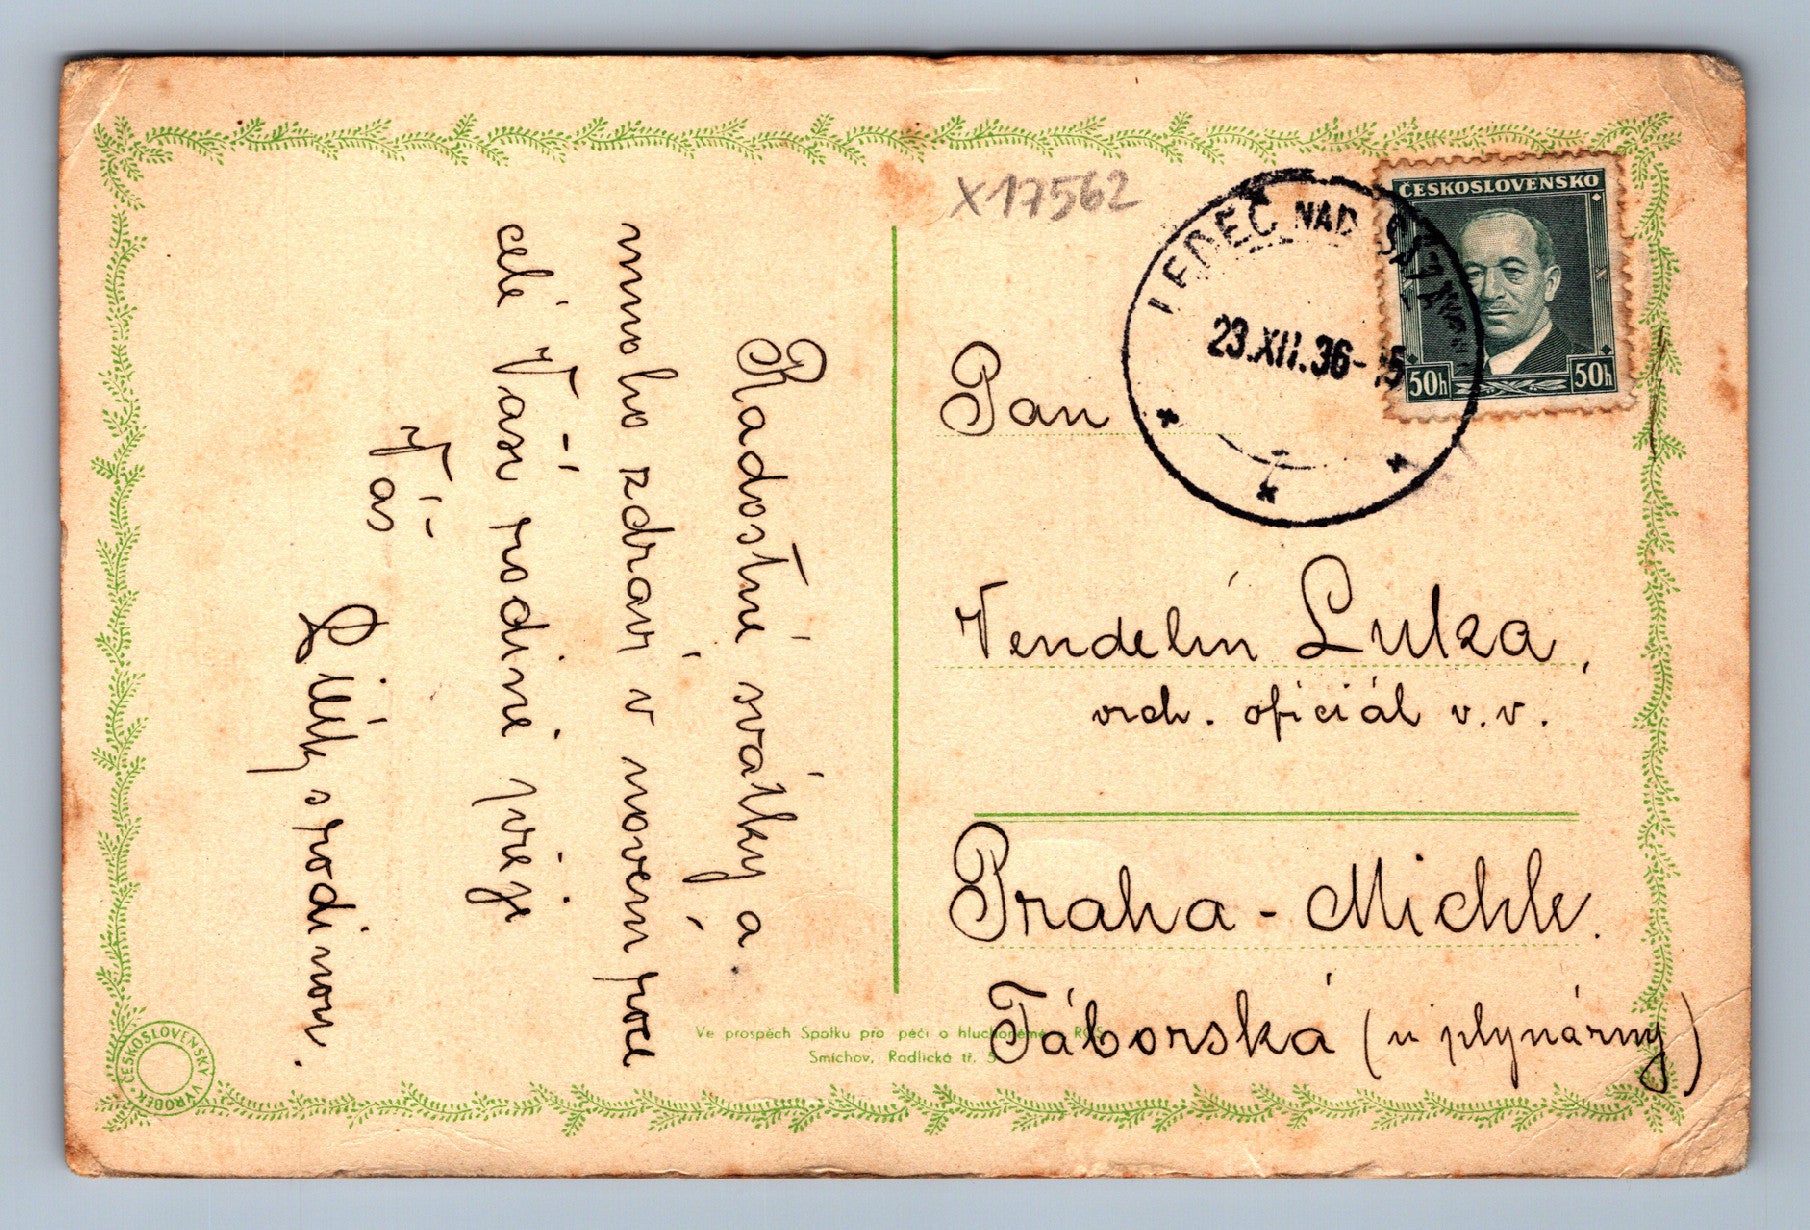 Radostné svátky a
mnoho zdraví v novém roce
celé Vaší rodině přeje
Váš
s rodinou.
X17562
NAD
23.XII.36-15
ČESKOSLOVENSKO
50h 50h
Pan
Vendelín Lulza,
vrch. oficiál v.v.
Praha - Michle.
Táborská (u plynárny)
Ve prospěch Spolku pro péči o hluchoněmé
Smíchov, Radlická tř. 5
ČESKOSLOVENSKÝ VÝROBEK